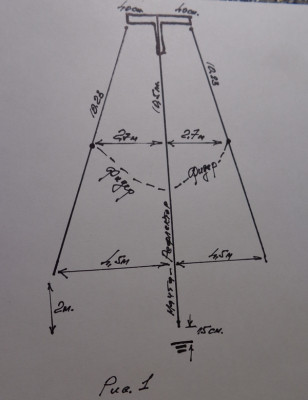 40см. 40см.
10,28
10,5м.
10,28
2,7м
2,7м
Фидер
Фидер
Мачта - Рефлектор
4,5м
4,5м
2м.
15см.
Рис. 1